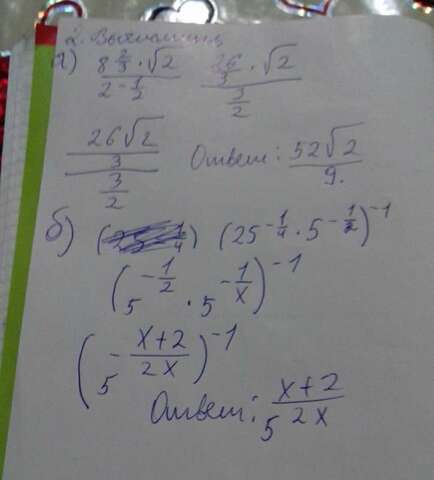 2. Вычислить
а) \frac{8\frac{2}{3} \cdot \sqrt{2}}{2 - \frac{1}{2}} \frac{\frac{26}{3} \cdot \sqrt{2}}{\frac{3}{2}}
\frac{\frac{26\sqrt{2}}{3}}{\frac{3}{2}} Ответ: \frac{52\sqrt{2}}{9}.
б) (25^{-\frac{1}{4}} \cdot 5^{-\frac{1}{2}})^{-1}
(5^{-\frac{1}{2}} \cdot 5^{-\frac{1}{x}})^{-1}
(5^{-\frac{x+2}{2x}})^{-1}
Ответ: 5^{\frac{x+2}{2x}}